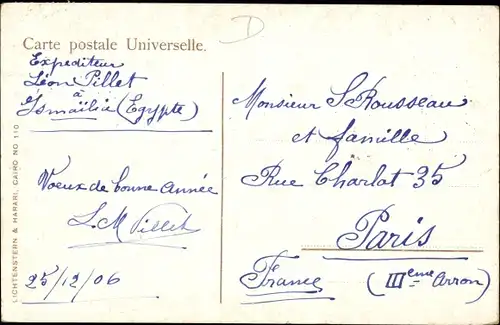 Carte postale Universelle.
D
Expéditeur
Léon Pillet
à
Ismaïlia (Egypte)
Voeux de bonne année
L M Pillet
25/12/06
Monsieur S Rousseau
et famille
Rue Charlot 35
Paris
France (IIIeme Arron)
LICHTENSTERN & HARARI, CAIRO NO 110